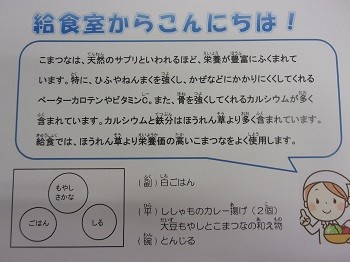 給食室からこんにちは！
こまつなは、天然のサプリといわれるほど、栄養が豊富にふくまれて
います。特に、ひふやねんまくを強くし、かぜなどにかかりにくくしてくれる
ベーターカロテンやビタミンC。また、骨を強くしてくれるカルシウムが多く
含まれています。カルシウムと鉄分はほうれん草より多く含まれています。
給食では、ほうれん草より栄養価の高いこまつなをよく使用します。
もやし
さかな
ごはん
しる
（副）白ごはん
（平）ししゃものカレー揚げ（２個）
大豆もやしとこまつなの和え物
（碗）とんじる